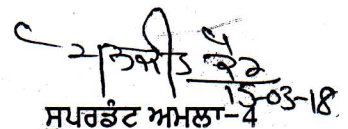 ਮਨਜੀਤ ਕੌਰ
15-03-18
ਸਪਰਡੰਟ ਅਮਲਾ-4